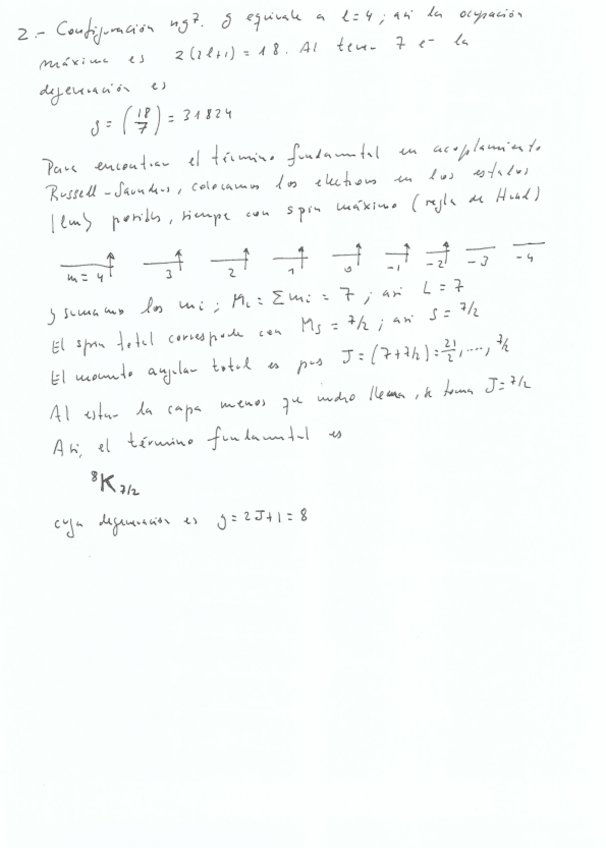 2.- Configuración ng7. g equivale a l=4; así la ocupación
máxima es 2(2l+1) = 18. Al tener 7 e- la
degeneración es
g = (18/7) = 31824
Para encontrar el término fundamental en acoplamiento
Russell-Saunders, colocamos los electrones en los estados
|lm> posibles, siempre con spin máximo (regla de Hund)
m=4 3 2 1 0 -1 -2 -3 -4
y sumamos los mi; ML = Σmi = 7; así L = 7
El spin total corresponde con Ms = 7/2; así S = 7/2
El momento angular total es pues J = (7+7/2) = 21/2, ..., 7/2
Al estar la capa menos que medio llena, se toma J = 7/2
Así, el término fundamental es
⁸K7/2
cuya degeneración es g = 2J+1 = 8